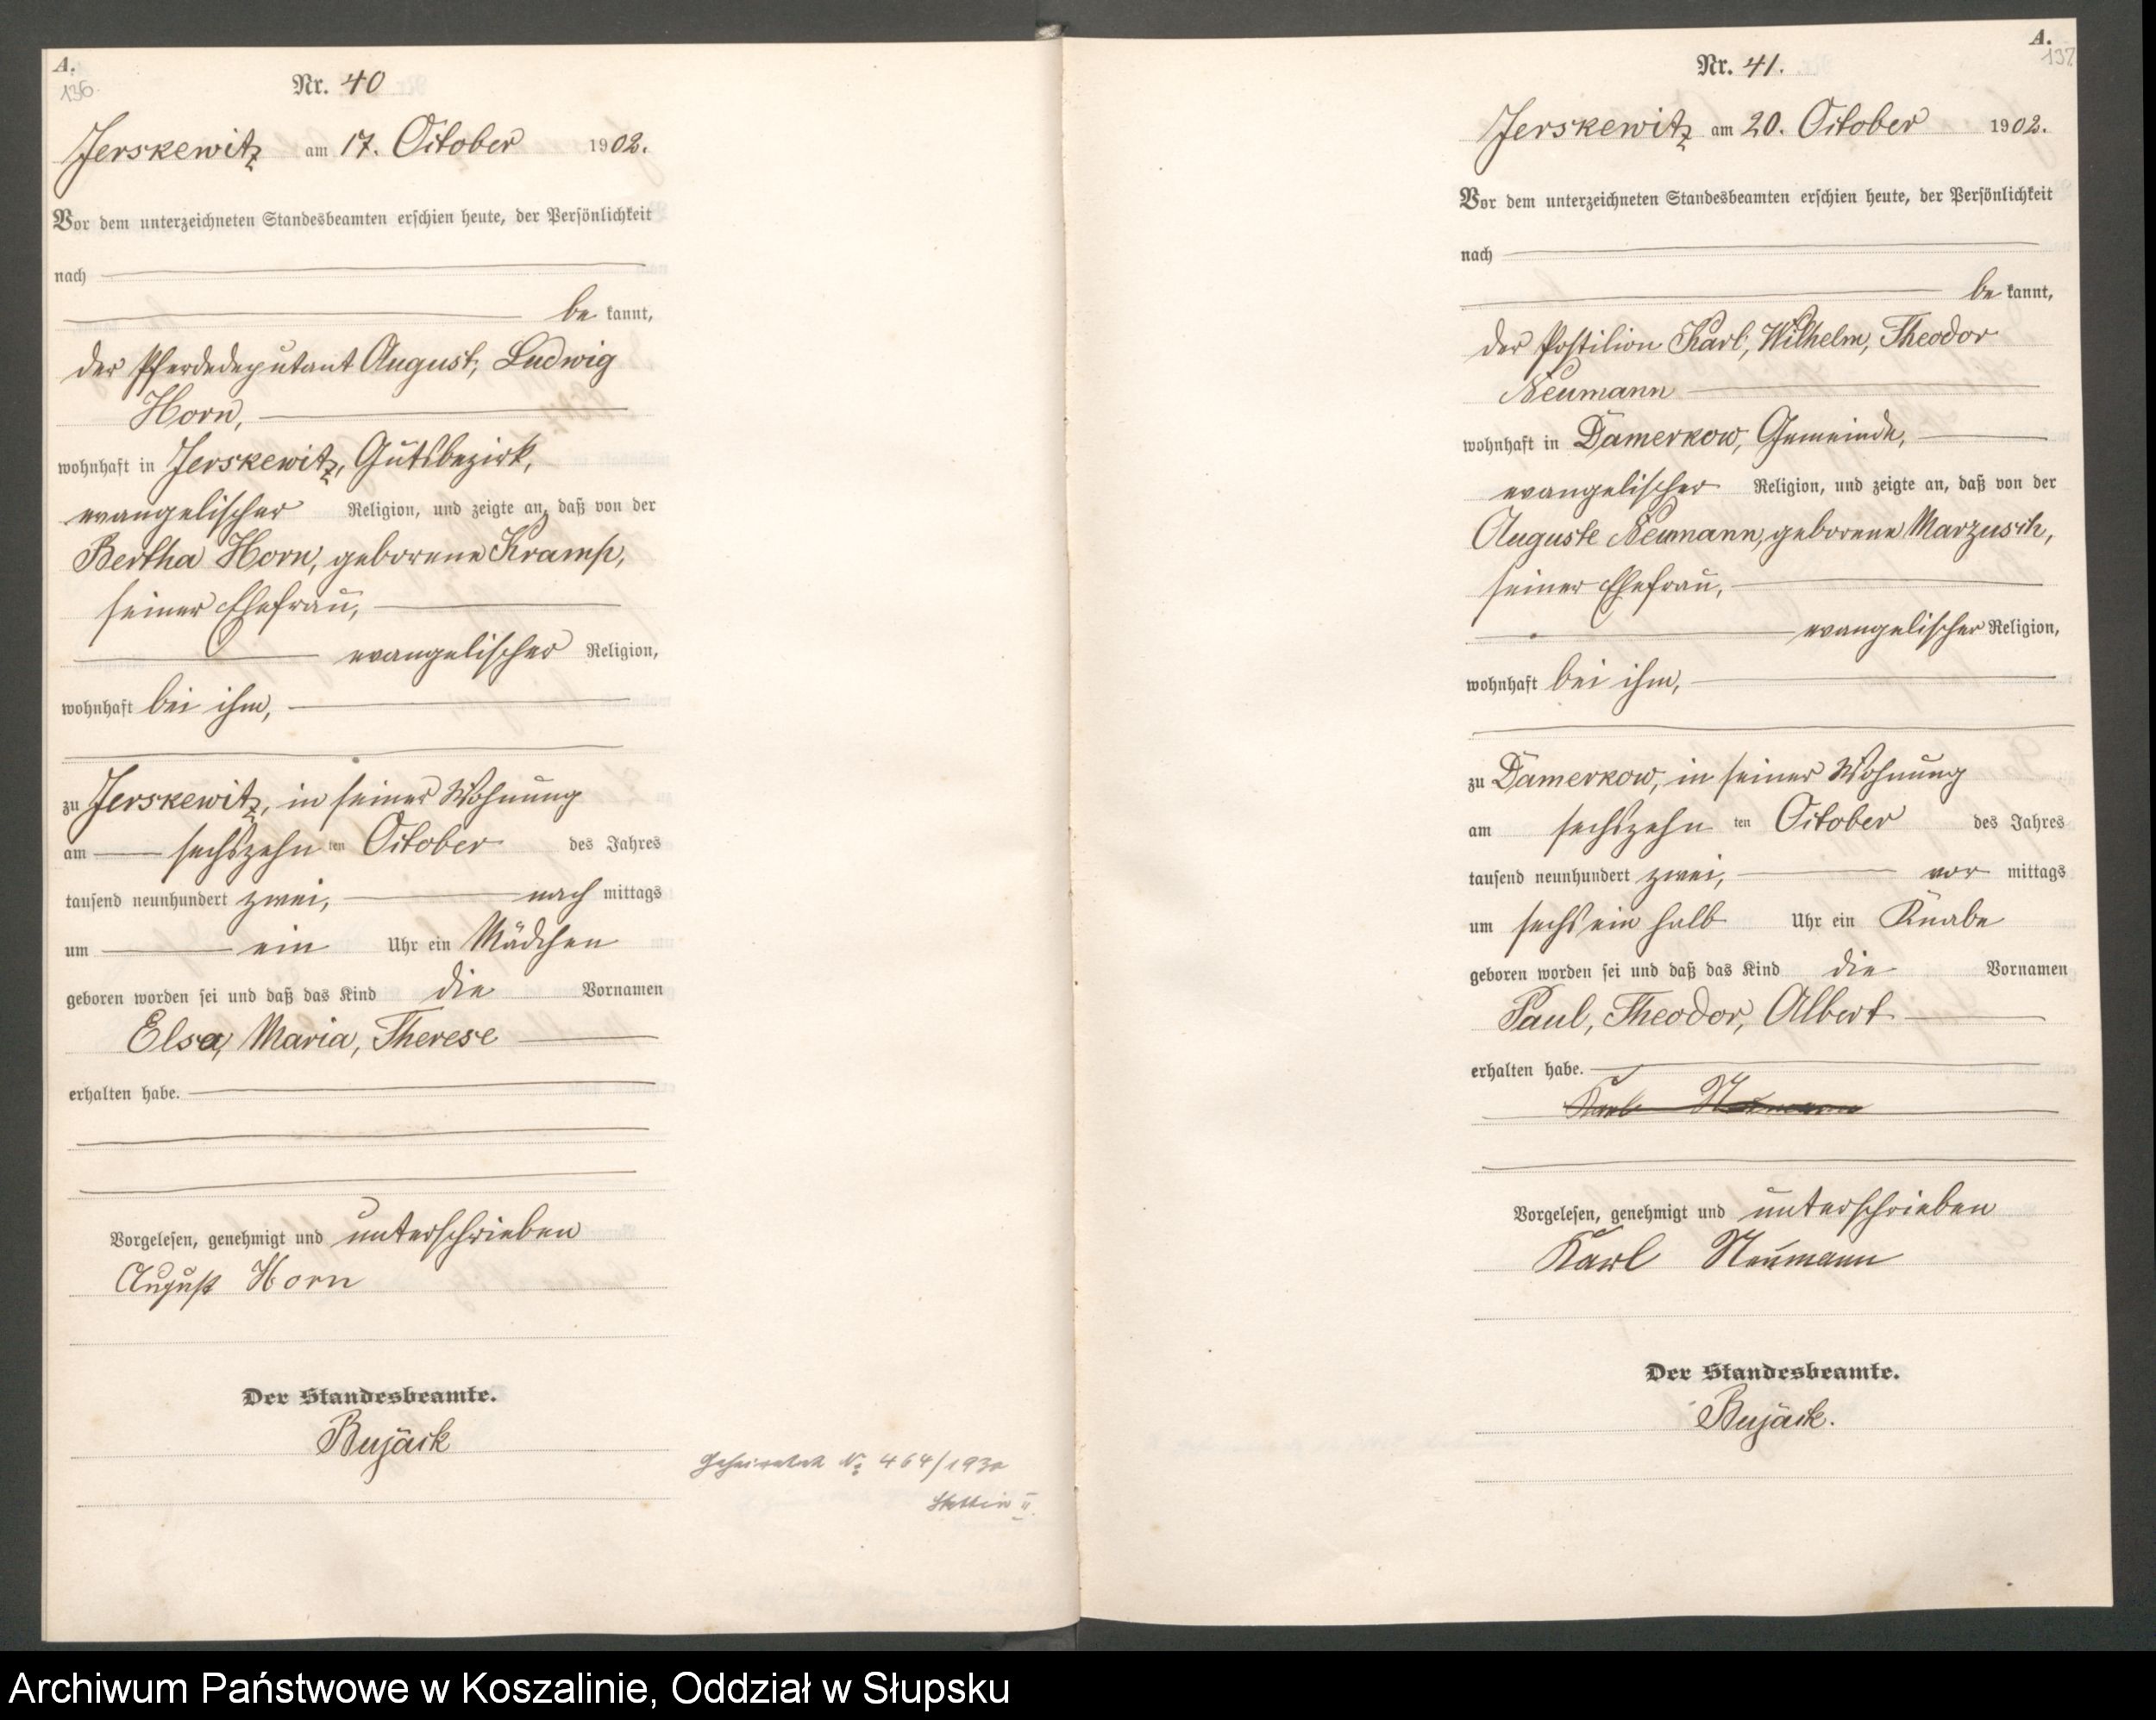 A.
136.
Nr. 40
Jerskewitz am 17. October 1902.
Vor dem unterzeichneten Standesbeamten erschien heute, der Persönlichkeit
nach
be kannt,
der Pferdedeputant August, Ludwig
Horn,
wohnhaft in Jerskewitz, Gutsbezirk,
evangelischer Religion, und zeigte an, daß von der
Bertha Horn, geborene Kramp,
seiner Ehefrau,
evangelischer Religion,
wohnhaft bei ihm,
zu Jerskewitz, in seiner Wohnung
am sechszehn ten October des Jahres
tausend neunhundert zwei, nach mittags
um ein Uhr ein Mädchen
geboren worden sei und daß das Kind die Vornamen
Elsa, Maria, Therese
erhalten habe.
Vorgelesen, genehmigt und unterschrieben
August Horn
Der Standesbeamte.
Bujäck
Geheiratet No 464/1930
Stettin II.
A.
137
Nr. 41.
Jerskewitz am 20. October 1902.
Vor dem unterzeichneten Standesbeamten erschien heute, der Persönlichkeit
nach
be kannt,
der Postilion Karl, Wilhelm, Theodor
Neumann
wohnhaft in Damerkow, Gemeinde,
evangelischer Religion, und zeigte an, daß von der
Auguste Neumann, geborene Marzusch,
seiner Ehefrau,
evangelischer Religion,
wohnhaft bei ihm,
zu Damerkow, in seiner Wohnung
am sechszehn ten October des Jahres
tausend neunhundert zwei, vor mittags
um sechs ein halb Uhr ein Knabe
geboren worden sei und daß das Kind die Vornamen
Paul, Theodor, Albert
erhalten habe.
Karl Neumann
Vorgelesen, genehmigt und unterschrieben
Karl Neumann
Der Standesbeamte.
Bujäck.
Archiwum Państwowe w Koszalinie, Oddział w Słupsku